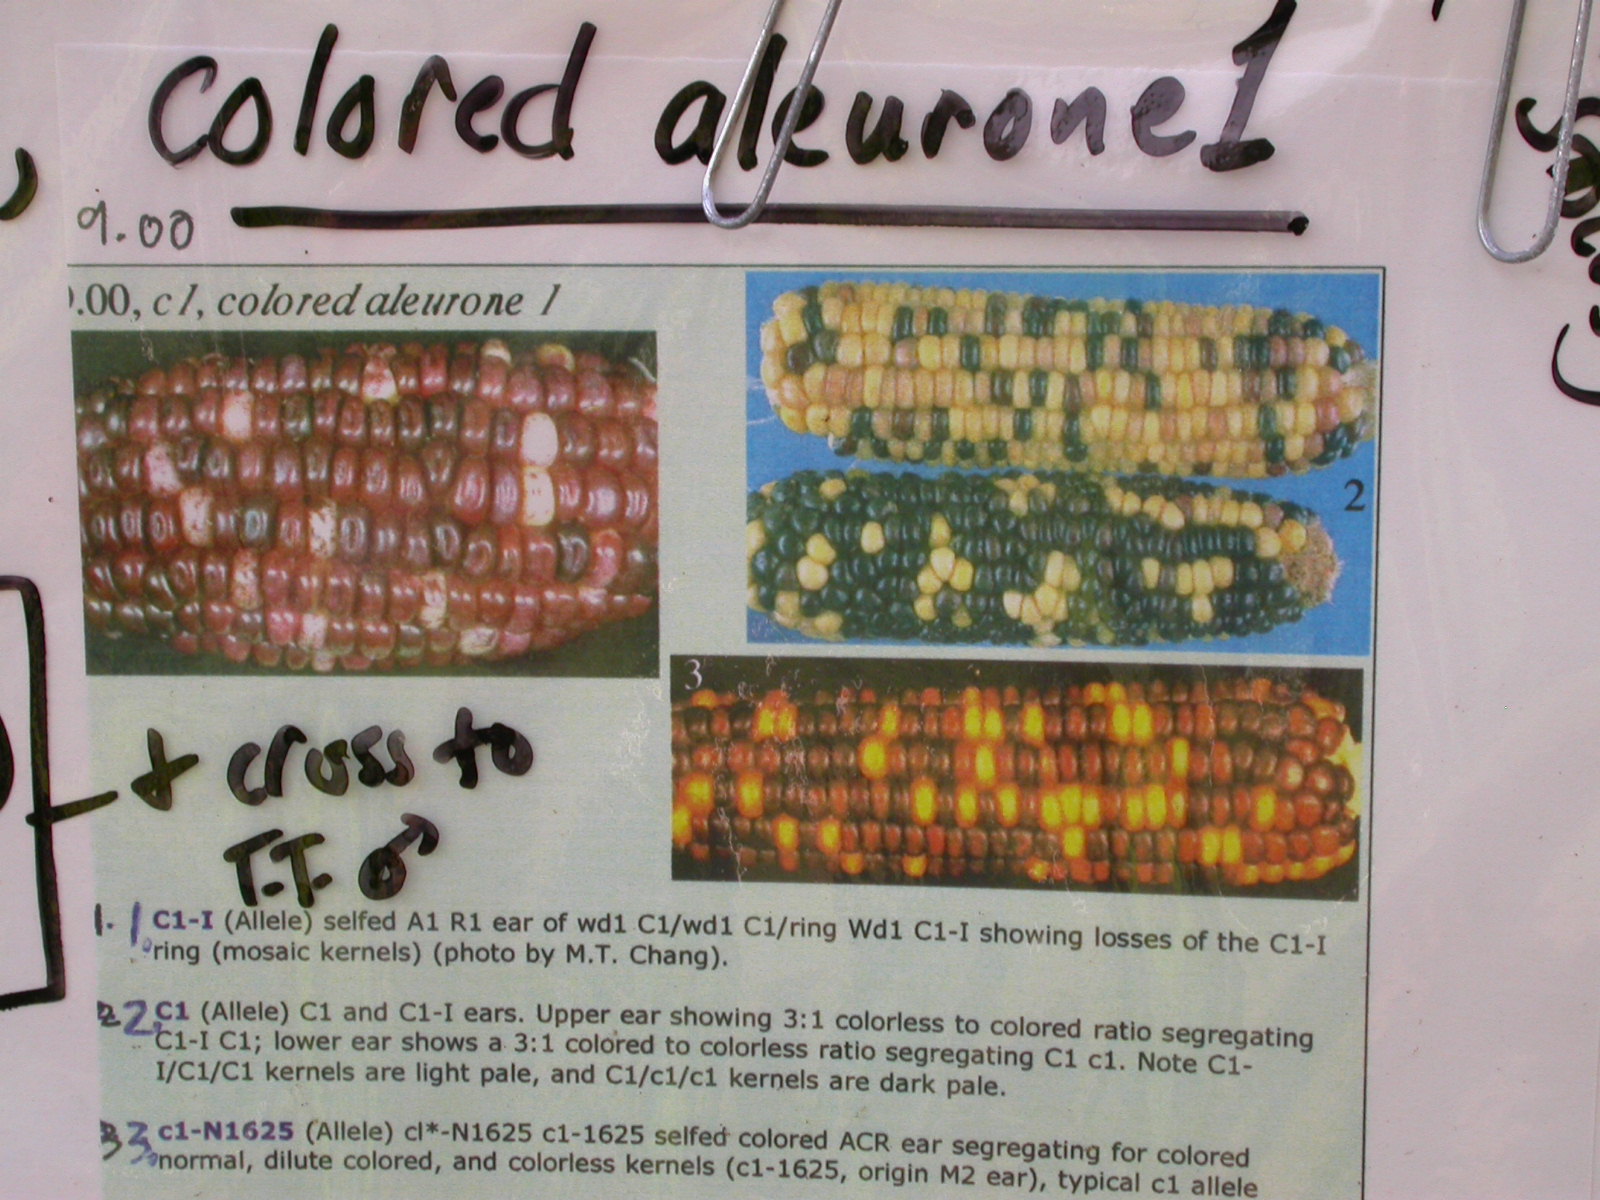 colored aleurone1
9.00
.00, c1, colored aleurone 1
2
3
+ cross to
T.T. ♂
1. 1. C1-I (Allele) selfed A1 R1 ear of wd1 C1/wd1 C1/ring Wd1 C1-I showing losses of the C1-I
ring (mosaic kernels) (photo by M.T. Chang).
2 2. C1 (Allele) C1 and C1-I ears. Upper ear showing 3:1 colorless to colored ratio segregating
C1-I C1; lower ear shows a 3:1 colored to colorless ratio segregating C1 c1. Note C1-
I/C1/C1 kernels are light pale, and C1/c1/c1 kernels are dark pale.
3 3. c1-N1625 (Allele) cl*-N1625 c1-1625 selfed colored ACR ear segregating for colored
normal, dilute colored, and colorless kernels (c1-1625, origin M2 ear), typical c1 allele